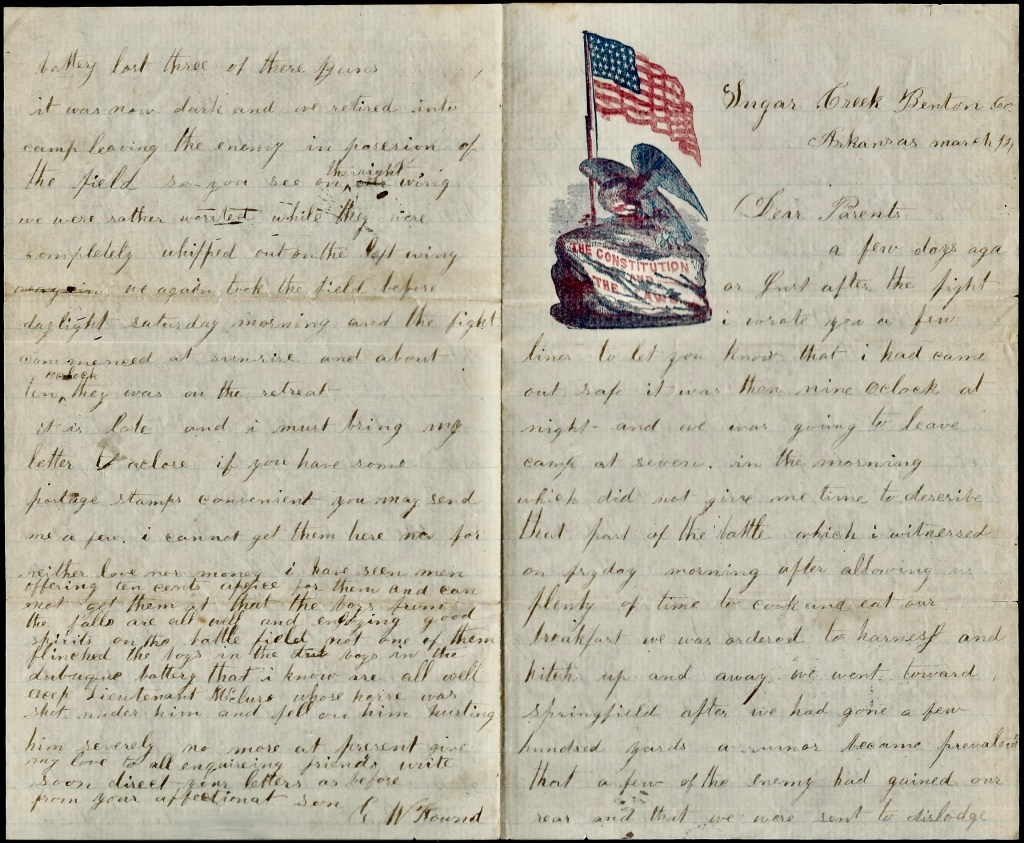 Sugar Creek Benton Co.
Arkansas march 12
Dear Parents
a few days aga
or Just after the fight
i wrote you a few
lines to let you know that i had came
out safe it was then nine oclock at
night and we was going to leave
camp at seven. in the morning
which did not give me time to describe
that part of the battle which i witnessed
on fryday morning after allowing us
plenty of time to cook and eat our
breakfast we was ordered to harness and
hitch up and away we went toward
springfield after we had gone a few
hundred yards a rumor became prevalent
that a few of the enemy had gained our
rear and that we were sent to dislodge
THE CONSTITUTION
AND
THE LAWS
battery lost three of there guns
it was now dark and we retired into
camp leaving the enemy in posesion of
the field so you see on the right wing
we were rather worsted while they were
completely whipped out on the left wing
we again took the field before
daylight saturday morning and the fight
commenced at sunrise and about
ten oclock they was on the retreat
it is late and i must bring my
letter to aclose if you have some
postage stamps convenient you may send
me a few. i cannot get them here now for
neither love nor money i have seen men
offering ten cents apeice for them and can
not get them at that the boys from
the falls are all well and enjoying good
spirits on the battle field not one of them
flinched the boys in the boys in the
dubuque battery that i know are all well
Lieutenant McClure whose horse was
shot under him and fell on him hurting
him severely no more at present give
my love to all enquireing friends write
soon direct your letters as before
from your affectionat son
G W Hound